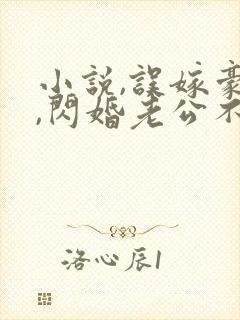 小説,誤嫁豪
,閃婚老公不
洛心辰1